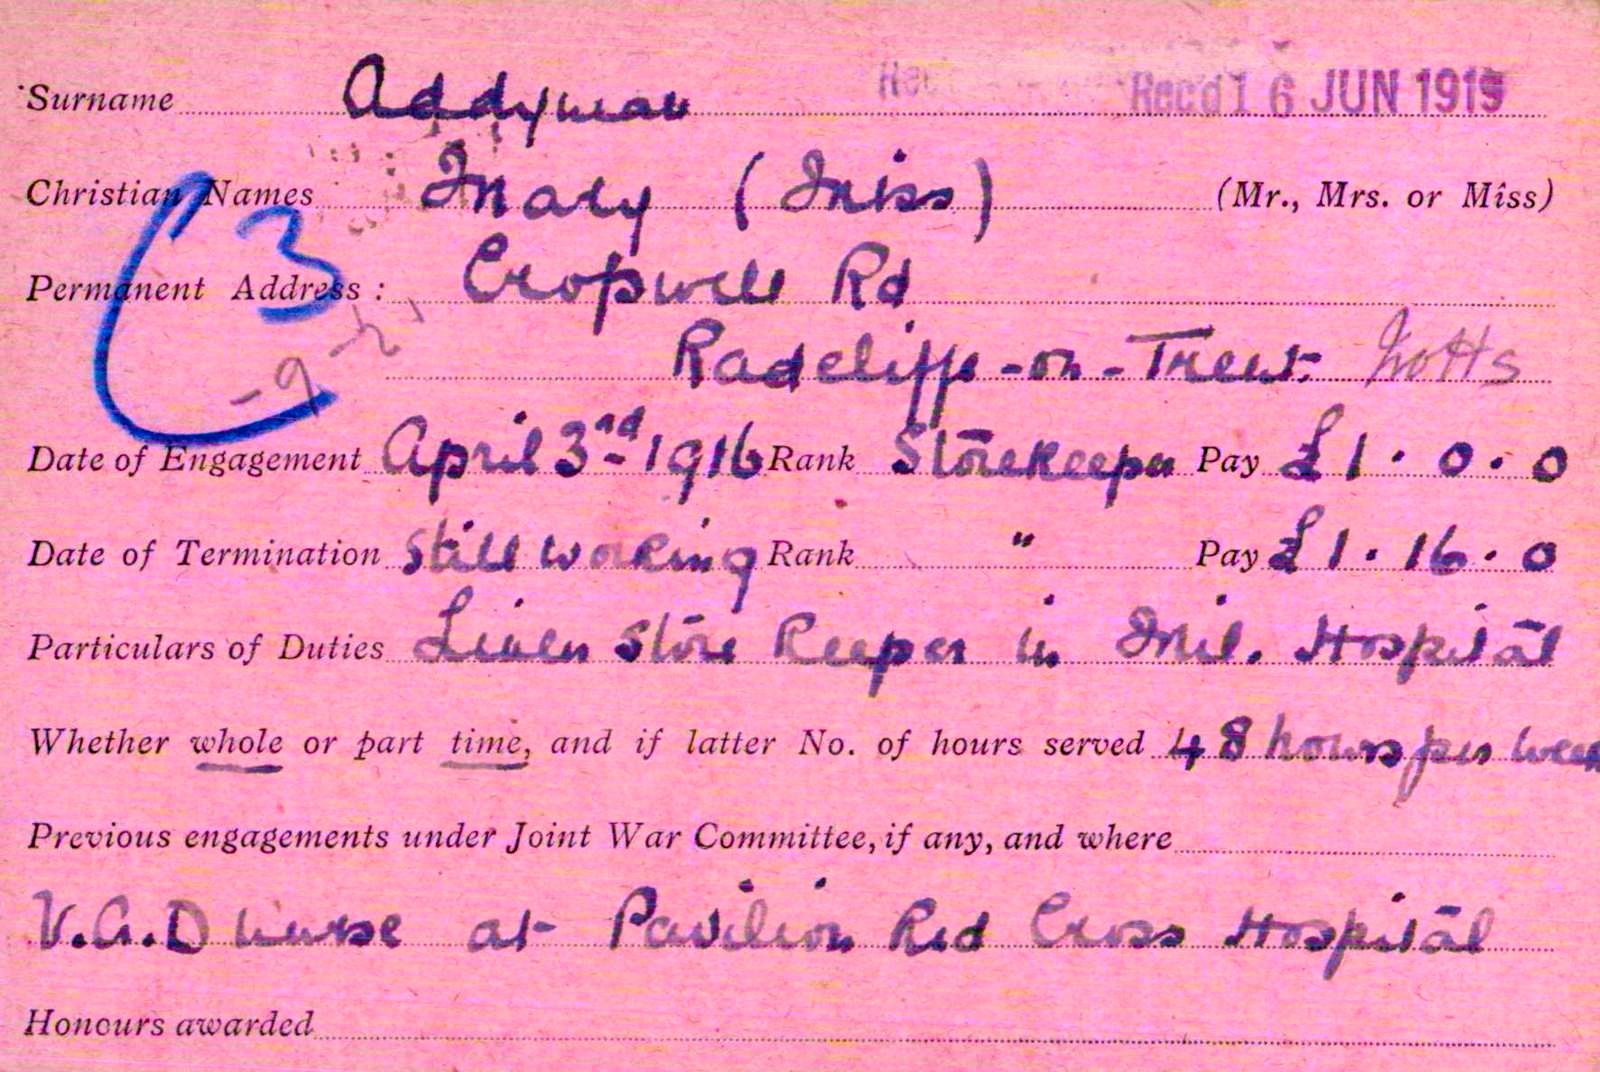 Surname Addyman Rec'd 16 JUN 1919
Christian Names Mary (Miss) (Mr., Mrs. or Miss)
Permanent Address: Cropwell Rd
3
Radcliffe-on-Trent. Notts
Date of Engagement April 3rd 1916 Rank Storekeeper Pay £1.0.0
Date of Termination Still working Rank " Pay £1.16.0
Particulars of Duties Linen Store Keeper in Mil. Hospital
Whether whole or part time, and if latter No. of hours served 48 hours per week
Previous engagements under Joint War Committee, if any, and where
V.A.D nurse at Pavilion Red Cross Hospital
Honours awarded